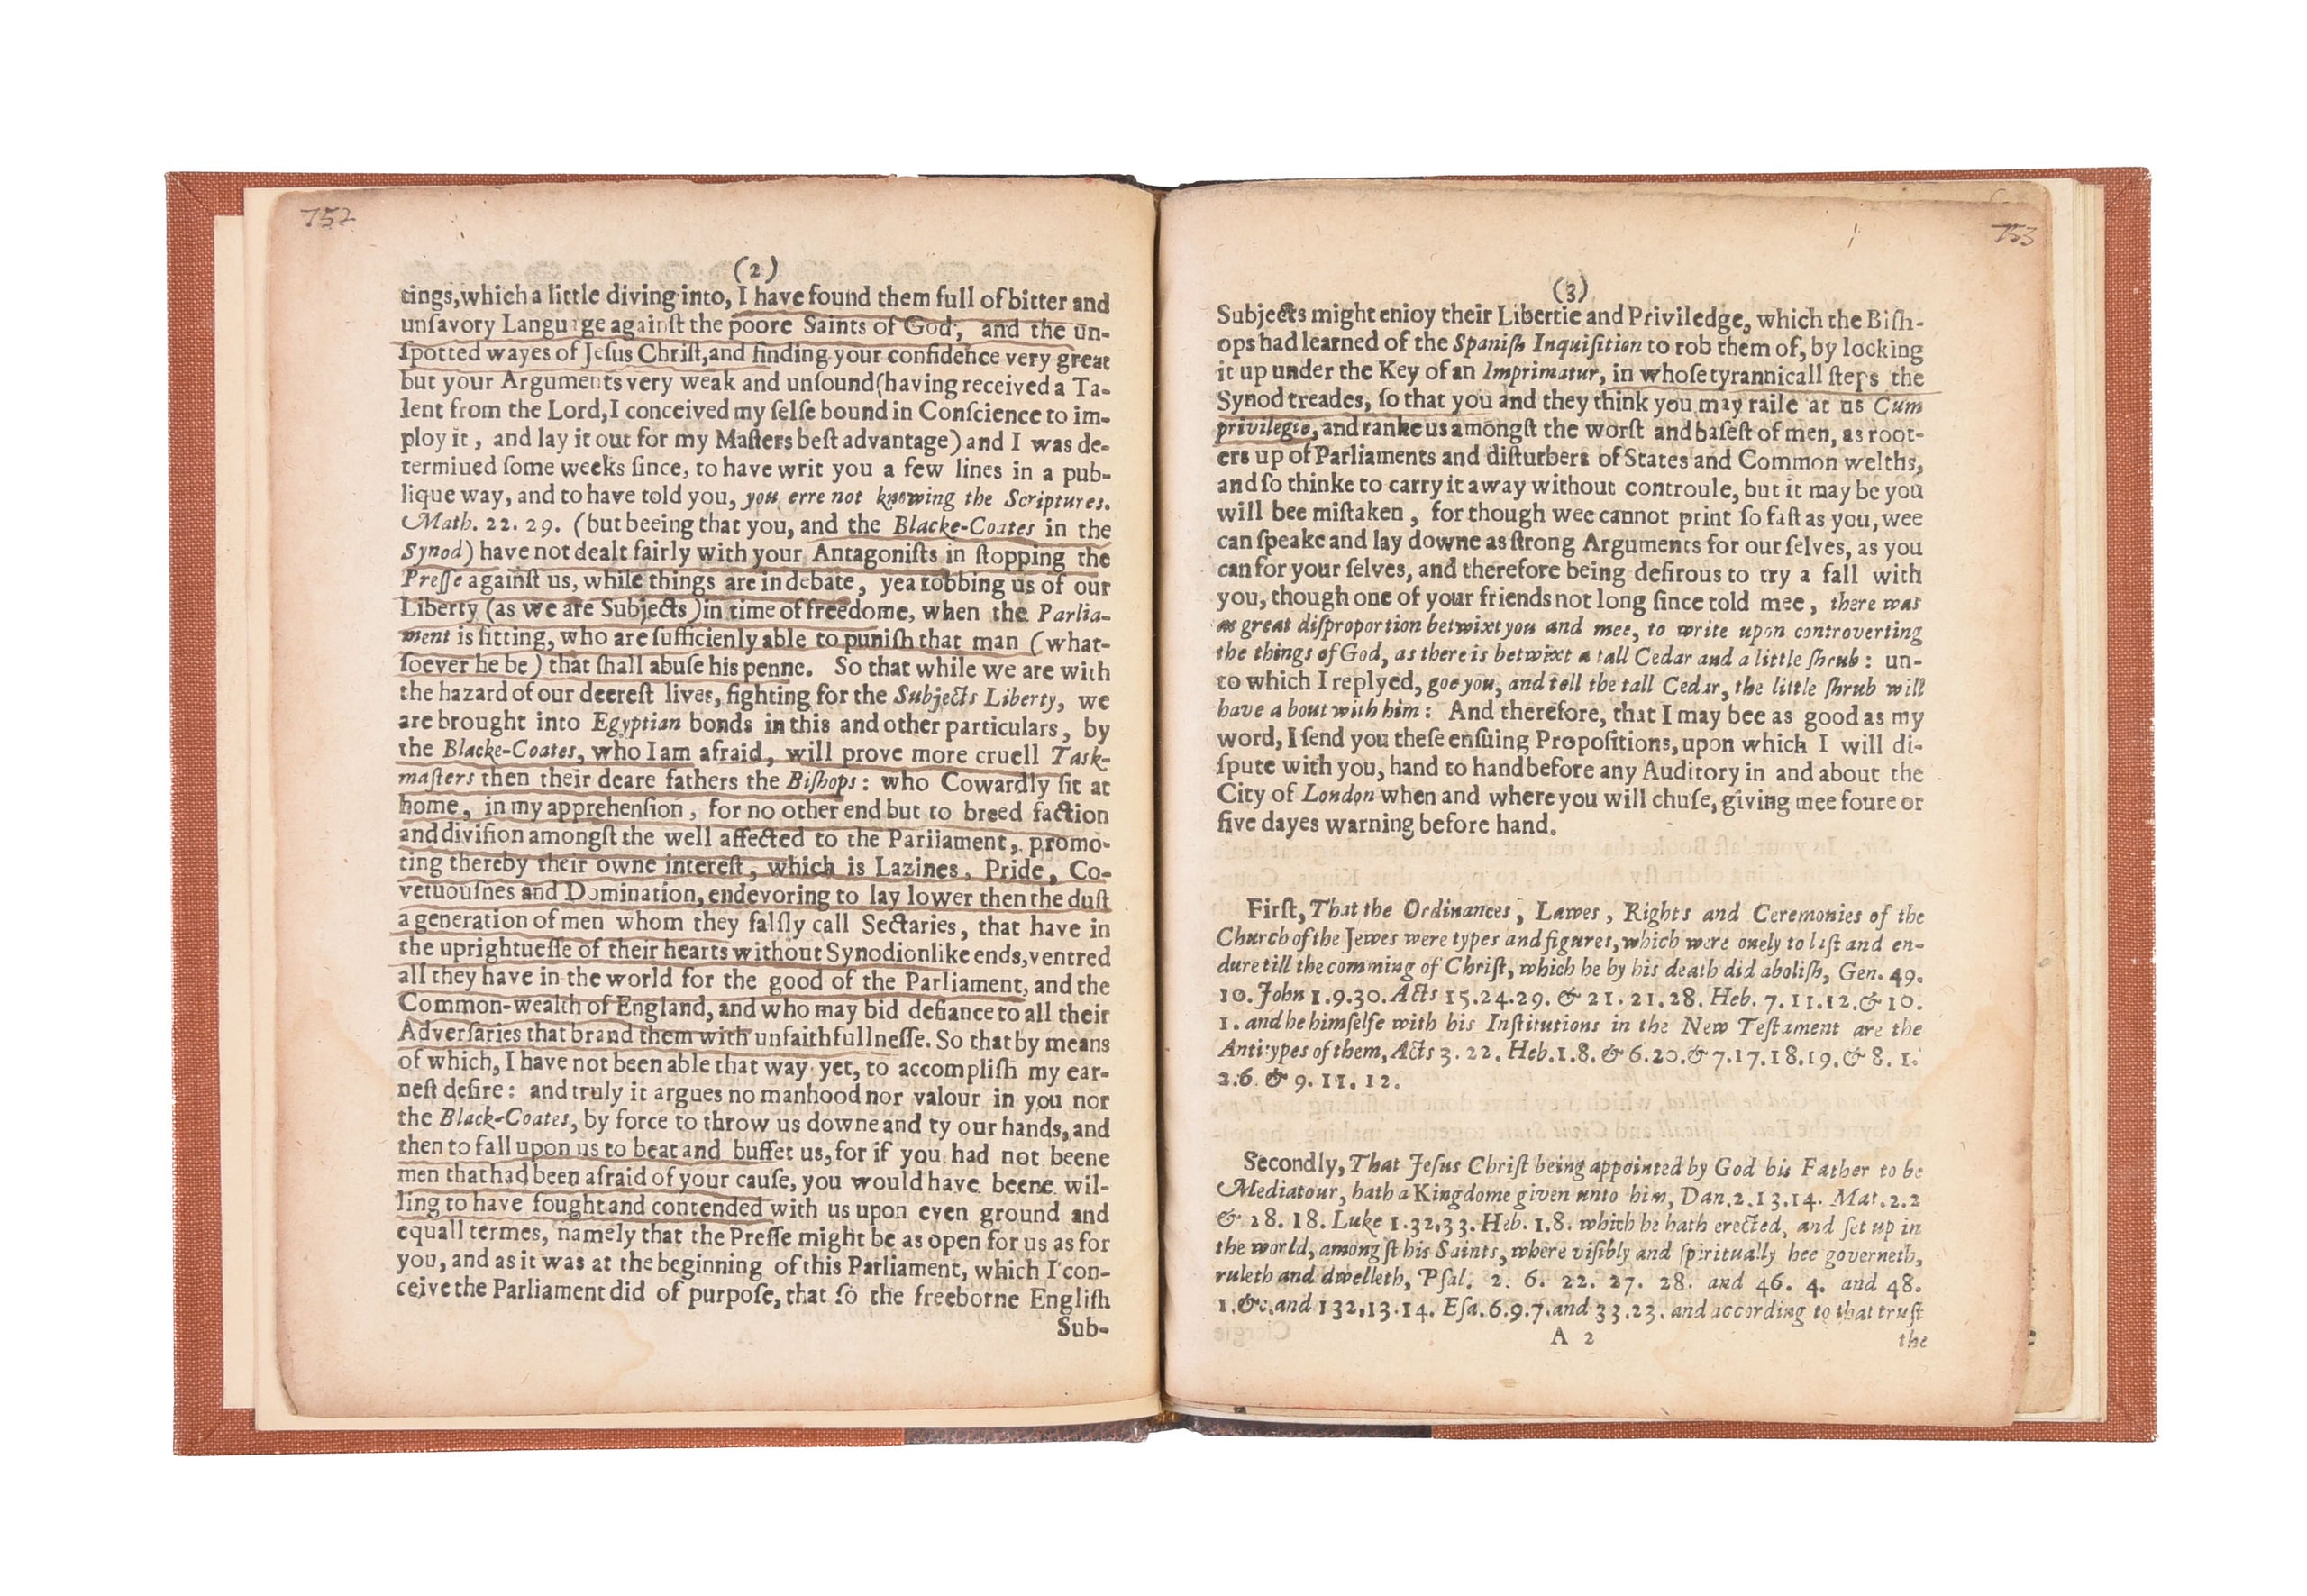 752
(2)
tings, which a little diving into, I have found them full of bitter and
unſavory Language againſt the poore Saints of God, and the un-
ſpotted wayes of Jeſus Chriſt, and finding your confidence very great
but your Arguments very weak and unſound (having received a Ta-
lent from the Lord, I conceived my ſelfe bound in Conſcience to im-
ploy it, and lay it out for my Maſters beſt advantage) and I was de-
termiued ſome weeks ſince, to have writ you a few lines in a pub-
lique way, and to have told you, you erre not knowing the Scriptures.
Math. 22. 29. (but beeing that you, and the Blacke-Coates in the
Synod) have not dealt fairly with your Antagoniſts in ſtopping the
Preſſe againſt us, while things are in debate, yea robbing us of our
Liberty (as we are Subjects) in time of freedome, when the Parlia-
ment is ſitting, who are ſufficienly able to puniſh that man (what-
ſoever he be) that ſhall abuſe his penne. So that while we are with
the hazard of our deereſt lives, fighting for the Subjects Liberty, we
are brought into Egyptian bonds in this and other particulars, by
the Blacke-Coates, who I am afraid, will prove more cruell Task-
maſters then their deare fathers the Biſhops: who Cowardly ſit at
home, in my apprehenſion, for no other end but to breed faction
and diviſion amongſt the well affected to the Pariiament, promo-
ting thereby their owne intereſt, which is Lazines, Pride, Co-
vetuouſnes and Domination, endevoring to lay lower then the duſt
a generation of men whom they falſly call Sectaries, that have in
the uprightueſſe of their hearts without Synodionlike ends, ventred
all they have in the world for the good of the Parliament, and the
Common-wealth of England, and who may bid defiance to all their
Adverſaries that brand them with unfaithfullneſſe. So that by means
of which, I have not been able that way yet, to accompliſh my ear-
neſt deſire: and truly it argues no manhood nor valour in you nor
the Black-Coates, by force to throw us downe and ty our hands, and
then to fall upon us to beat and buffet us, for if you had not beene
men that had been afraid of your cauſe, you would have beene wil-
ling to have fought and contended with us upon even ground and
equall termes, namely that the Preſſe might be as open for us as for
you, and as it was at the beginning of this Parliament, which I con-
ceive the Parliament did of purpoſe, that ſo the freeborne Engliſh
Sub-
753
(3)
Subjects might enioy their Libertie and Priviledge, which the Biſh-
ops had learned of the Spaniſh Inquiſition to rob them of, by locking
it up under the Key of an Imprimatur, in whoſe tyrannicall ſteps the
Synod treades, ſo that you and they think you may raile at us Cum
privilegio, and ranke us amongſt the worſt and baſeſt of men, as root-
ers up of Parliaments and diſturbers of States and Common welths,
and ſo thinke to carry it away without controule, but it may be you
will bee miſtaken, for though wee cannot print ſo faſt as you, wee
can ſpeake and lay downe as ſtrong Arguments for our ſelves, as you
can for your ſelves, and therefore being deſirous to try a fall with
you, though one of your friends not long ſince told mee, there was
as great diſproportion betwixt you and mee, to write upon controverting
the things of God, as there is betwixt a tall Cedar and a little ſhrub: un-
to which I replyed, goe you, and tell the tall Cedar, the little ſhrub will
have a bout with him: And therefore, that I may bee as good as my
word, I ſend you theſe enſuing Propoſitions, upon which I will di-
ſpute with you, hand to hand before any Auditory in and about the
City of London when and where you will chuſe, giving mee foure or
five dayes warning before hand.
Firſt, That the Ordinances, Lawes, Rights and Ceremonies of the
Church of the Jewes were types and figures, which were onely to laſt and en-
dure till the comming of Chriſt, which he by his death did aboliſh, Gen. 49.
10. John 1.9.30. Acts 15.24.29. & 21. 21. 28. Heb. 7. 11. 12. & 10.
1. and he himſelfe with his Inſtitutions in the New Teſtament are the
Antitypes of them, Acts 3. 22. Heb. 1. 8. & 6. 20. & 7. 17. 18. 19. & 8. 1.
2. 6. & 9. 11. 12.
Secondly, That Jeſus Chriſt being appointed by God his Father to be
Mediatour, hath a Kingdome given unto him, Dan. 2. 13. 14. Mat. 2. 2
& 28. 18. Luke 1. 32, 33. Heb. 1. 8. which he hath erected, and ſet up in
the world, amongſt his Saints, where viſibly and ſpiritually hee governeth,
ruleth and dwelleth, Pſal. 2. 6. 22. 27. 28. and 46. 4. and 48.
1. &c. and 132, 13. 14. Eſa. 6. 9. 7. and 33. 23. and according to that truſt
A 2
the